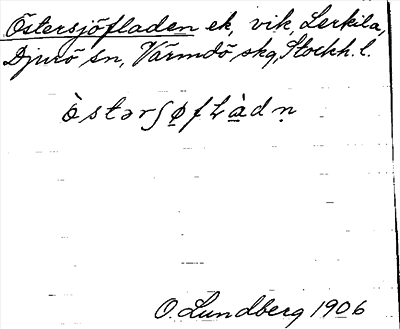 Östersjöfladen ek, vik, Lerkila,
Djurö sn, Värmdö skg, Stockh. l.
ò̀stərʃøfɫàdṇ
O. Lundberg 1906